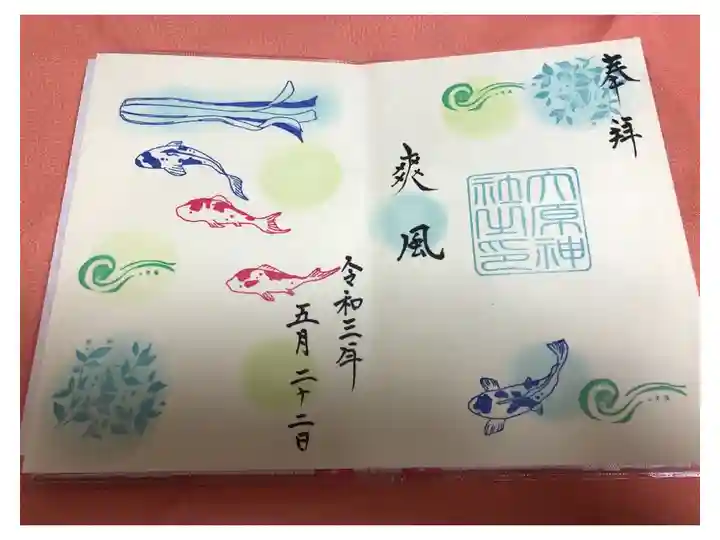 奉拝
大原神
社之印
爽風
令和三年
五月二十二日